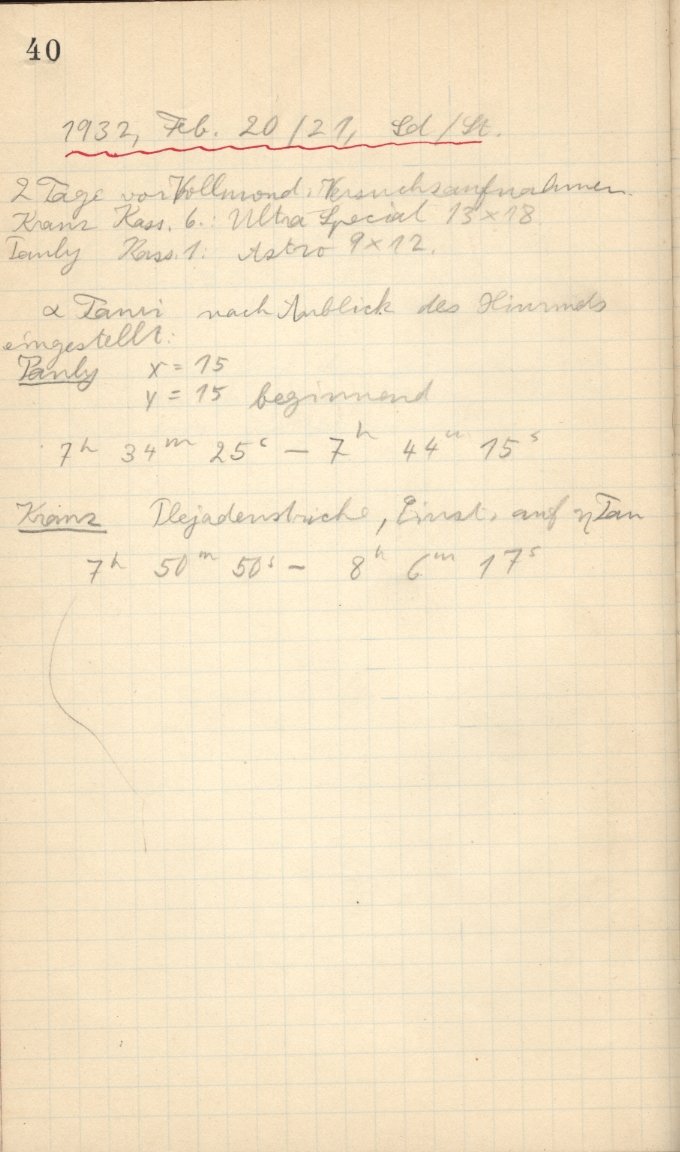 40
1932, Feb. 20/21, Sd/St.
2 Tage vor Vollmond. Versuchsaufnahmen.
Kranz Kass. 6.: Ultra Special 13×18
Pauly Kass. 1: Astro 9×12.
α Tauri nach Anblick des Himmels
eingestellt:
Pauly x = 15
y = 15 beginnend
7h 34m 25s – 7h 44m 15s
Kranz Plejadenstriche, Einst. auf η Tau
7h 50m 50s – 8h 6m 17s